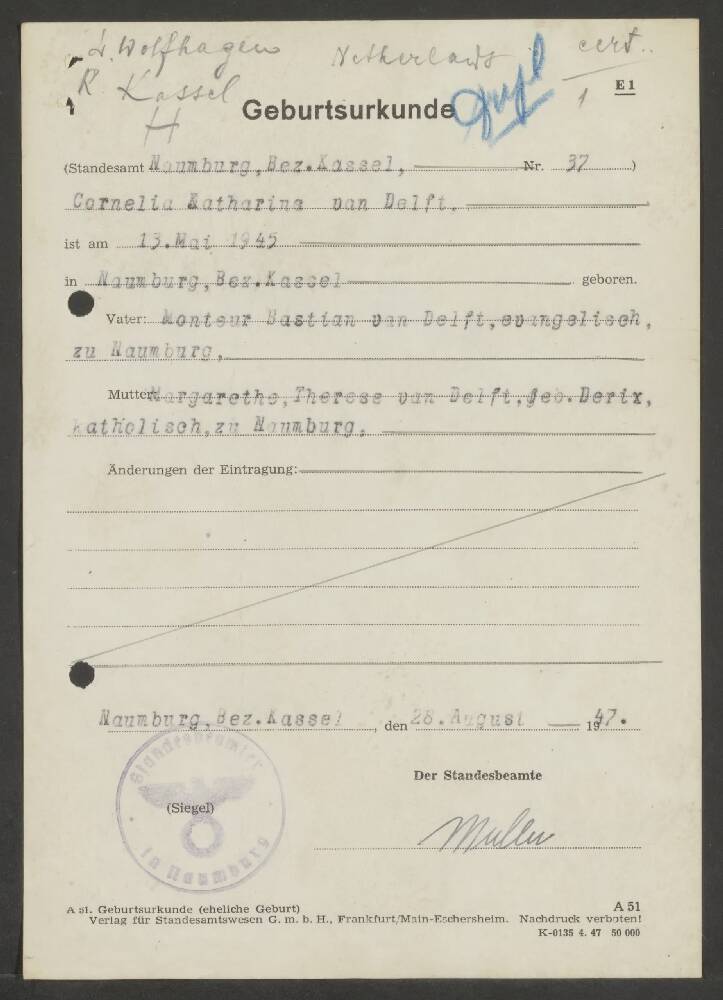 Wolfhagen Netherlands cert.
K Kassel
H
Dupl
1
E 1
Geburtsurkunde
(Standesamt Naumburg, Bez. Kassel, Nr. 37)
Cornelia Katharina van Delft,
ist am 13. Mai 1945
in Naumburg, Bez. Kassel geboren.
Vater: Monteur Bastian van Delft, evangelisch,
zu Naumburg,
Mutter: Margarethe, Therese van Delft, geb. Derix,
katholisch, zu Naumburg,
Änderungen der Eintragung:
Naumburg, Bez. Kassel, den 28. August 1947.
Der Standesbeamte
(Siegel)
Standesbeamter
in Naumburg
Müller
A 51. Geburtsurkunde (eheliche Geburt) A 51
Verlag für Standesamtswesen G. m. b. H., Frankfurt/Main-Eschersheim. Nachdruck verboten!
K-0135 4. 47 50 000